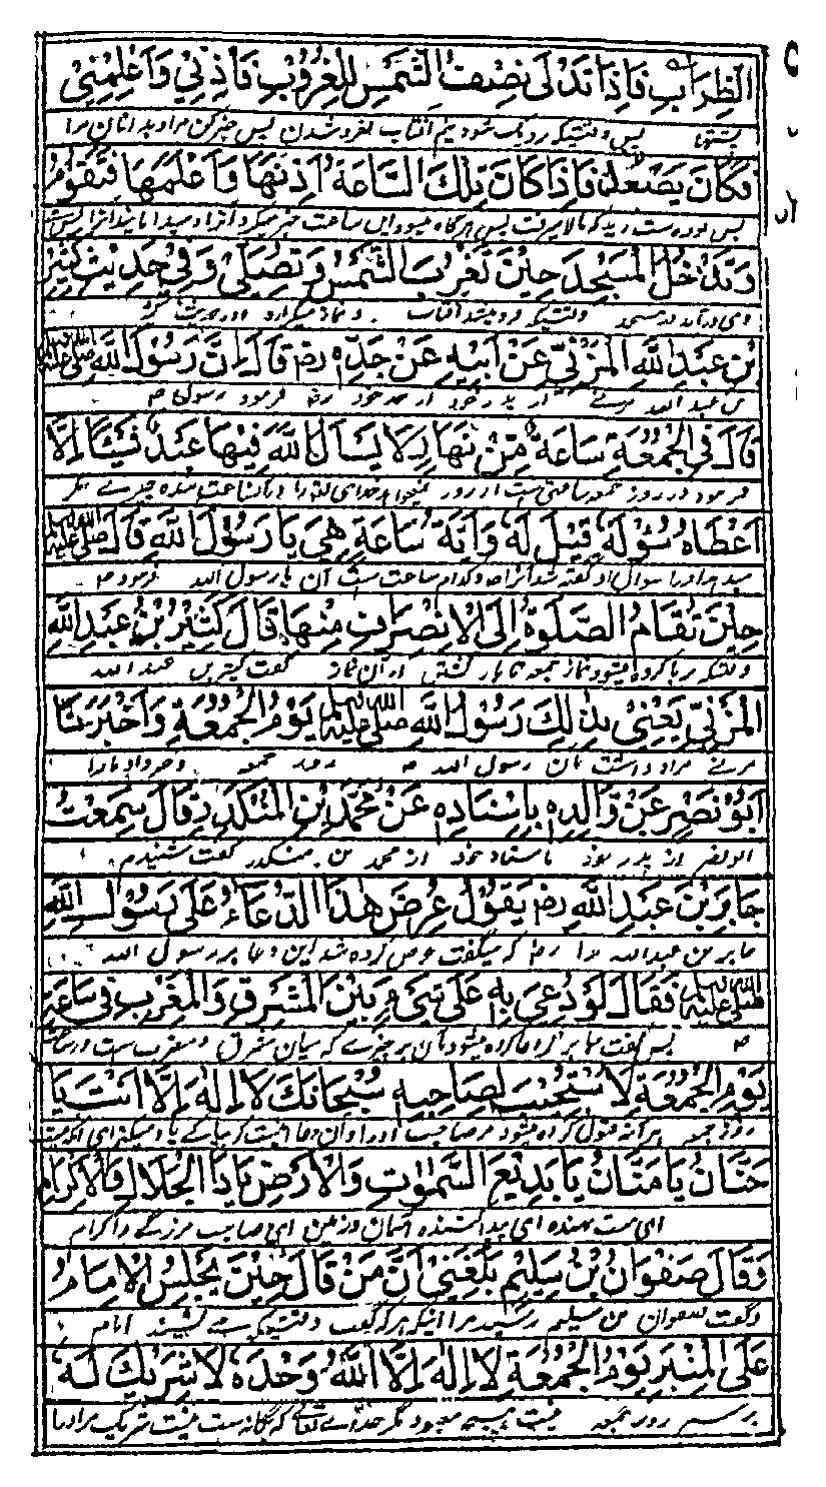 الظِّرَابِ فَاِذَا تَدَلّٰى نِصْفُ الشَّمْسِ لِلْغُرُوْبِ فَاٰذِنِيْ وَاَعْلِمِيْنِيْ
پس وقتیکه نزدیک شود نیم آفتاب بغروب شدن پس خبر کن مرا و بدانان مرا
فَكَانَ يَصْعَدُ فَاِذَا كَانَ تِلْكَ السَّاعَةُ اٰذَنَهَا وَاَعْلَمَهَا فَتَقُوْمُ
پس بوده است زید که بالا میرفت پس هرگاه میبود این ساعت خبر میکرد
وَتَدْخُلُ الْمَسْجِدَ حِيْنَ تَغْرُبَ الشَّمْسُ وَتُصَلِّيْ وَفِيْ حَدِيْثِ كَثِيْرِ
و می در آمد در مسجد وقتیکه فرو میشد آفتاب و نماز میگزارد و در حدیث کثیر
بْنِ عَبْدِ اللّٰهِ الْمُزَنِّيِّ عَنْ اَبِيْهِ عَنْ جَدِّهٖ رضہ قَالَ اِنَّ رَسُوْلَ اللّٰهِ صَلَّى اللّٰهُ عَلَيْهِ وَسَلَّمَ
بن عبد الله مزنی از پدر خود از جد خود رضہ فرمود رسول خدا ص
قَالَ فِي الْجُمُعَةِ سَاعَةٌ مِّنْ نَهَارٍ لَا يَسْاَلُ اللّٰهَ فِيْهَا عَبْدٌ شَيْئًا اِلَّا
فرمود در روز جمعه ساعتی ست از روز نمیخواهد خدای تعالی را در آن ساعت بنده چیزے مگر
اَعْطَاهُ سُؤْلَهٗ قِيْلَ لَهٗ وَاَيَّةُ سَاعَةٍ هِيَ يَا رَسُوْلَ اللّٰهِ قَالَ صَلَّى اللّٰهُ عَلَيْهِ وَسَلَّمَ
میدهد او را سوال او گفته شد آنرا ص و کدام ساعت ست آن یا رسول الله فرمود ص
حِيْنَ تُقَامُ الصَّلٰوةُ اِلَى الْاِنْصِرَافِ مِنْهَا قَالَ كَثِيْرُ بْنُ عَبْدِ اللّٰهِ
وقتیکه برپا کرده میشود نماز جمعه تا باز گشتن از آن نماز گفت کثیر بن عبد الله
الْمُزَنِّيِّ يَعْنِيْ بِذٰلِكَ رَسُوْلُ اللّٰهِ صَلَّى اللّٰهُ عَلَيْهِ وَسَلَّمَ يَوْمَ الْجُمُعَةِ وَاَخْبَرَنَا
مزنی مراد داشت بآن رسول الله ص روز جمعه و خبر داد ما را
اَبُوْ نَصْرٍ عَنْ وَّالِدِهٖ بِاِسْنَادِهٖ عَنْ مُحَمَّدِ بْنِ الْمُنْكَدِرِ قَالَ سَمِعْتُ
ابو نصر از پدر خود باسناد خود از محمد بن منکدر گفت شنیدم
جَابِرَ بْنَ عَبْدِ اللّٰهِ رضہ يَقُوْلُ عُرِضَ هٰذَا الدُّعَاءُ عَلٰى رَسُوْلِ اللّٰهِ
جابر بن عبد الله را رضہ که میگفت عرض کرده شد این دعا بر رسول الله
صَلَّى اللّٰهُ عَلَيْهِ وَسَلَّمَ فَقَالَ لَوْ دُعِيَ بِهٖ عَلٰى شَيْءٍ بَيْنَ الْمَشْرِقِ وَالْمَغْرِبِ فِيْ سَاعَةٍ
ص پس گفت بر چیزے که میان مشرق و مغرب ست در ساعت
يَوْمِ الْجُمُعَةِ لَاسْتُجِيْبَ لِصَاحِبِهٖ سُبْحَانَكَ لَا اِلٰهَ اِلَّا اَنْتَ يَا
روز جمعه هر آئنه قبول کرده میشود مر صاحب او را و آن دعا
حَنَّانُ يَا مَنَّانُ يَا بَدِيْعَ السَّمٰوٰتِ وَالْاَرْضِ يَا ذَا الْجَلَالِ وَالْاِكْرَامِ
ای پیدا کننده آسمان و زمین ای صاحب بزرگی و اکرام
وَقَالَ صَفْوَانُ بْنُ سَلِيْمٍ بَلَغَنِيْ اَنَّ مَنْ قَالَ حِيْنَ يَجْلِسُ الْاِمَامُ
و گفت صفوان بن سلیم رسید مرا اینکه هر که گوید وقتیکه بنشیند امام
عَلَى الْمِنْبَرِ يَوْمَ الْجُمُعَةِ لَا اِلٰهَ اِلَّا اللّٰهُ وَحْدَهٗ لَا شَرِيْكَ لَهٗ
بر منبر روز جمعه نیست هیچ معبود مگر خدای تعالی که یگانه ست نیست شریک مر او را